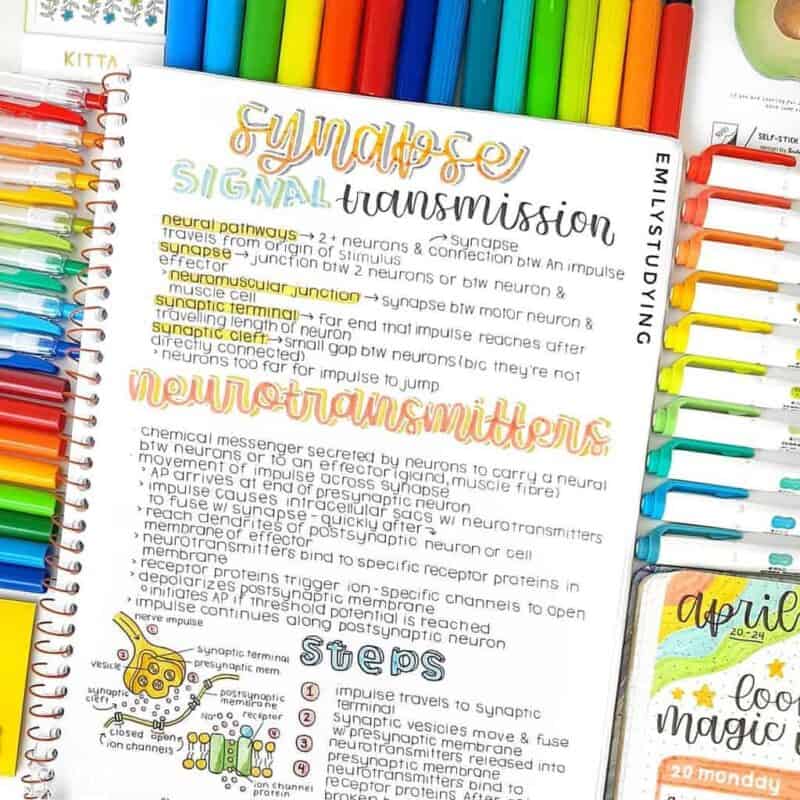 KITTA
SELF-STICK
EMILYSTUDYING
synapse
SIGNAL transmission
neural pathways → 2+ neurons & connection btw. An impulse
synapse
travels from origin of stimulus
synapse → junction btw 2 neurons or btw neuron &
effector
> neuromuscular junction → synapse btw motor neuron &
muscle cell
synaptic terminal → far end that impulse reaches after
travelling length of neuron
synaptic cleft → small gap btw neurons (b/c they're not
directly connected)
> neurons too far for impulse to jump
neurotransmitters
chemical messenger secreted by neurons to carry a neural
btw neurons or to an effector (gland, muscle fibre)
movement of impulse across synapse
> AP arrives at end of presynaptic neuron
> impulse causes intracellular sacs w/ neurotransmitters
to fuse w/ synapse - quickly after →
> reach dendrites of postsynaptic neuron or cell
membrane of effector
> neurotransmitters bind to specific receptor proteins in
membrane
> receptor proteins trigger ion-specific channels to open
> depolarizes postsynaptic membrane
initiates AP if threshold potential is reached
> impulse continues along postsynaptic neuron
nerve impulse
1
synaptic terminal
presynaptic mem.
vesicle
2
3
synaptic
cleft
postsynaptic
membrane
closed open
ion channels
Na+
receptor
4
ion channel
protein
steps
1 impulse travels to synaptic
terminal
2 synaptic vesicles move & fuse
w/ presynaptic membrane
3 neurotransmitters released into
presynaptic membrane
4 neurotransmitters bind to
receptor proteins. After
broken
april
20-24
magic
20 monday